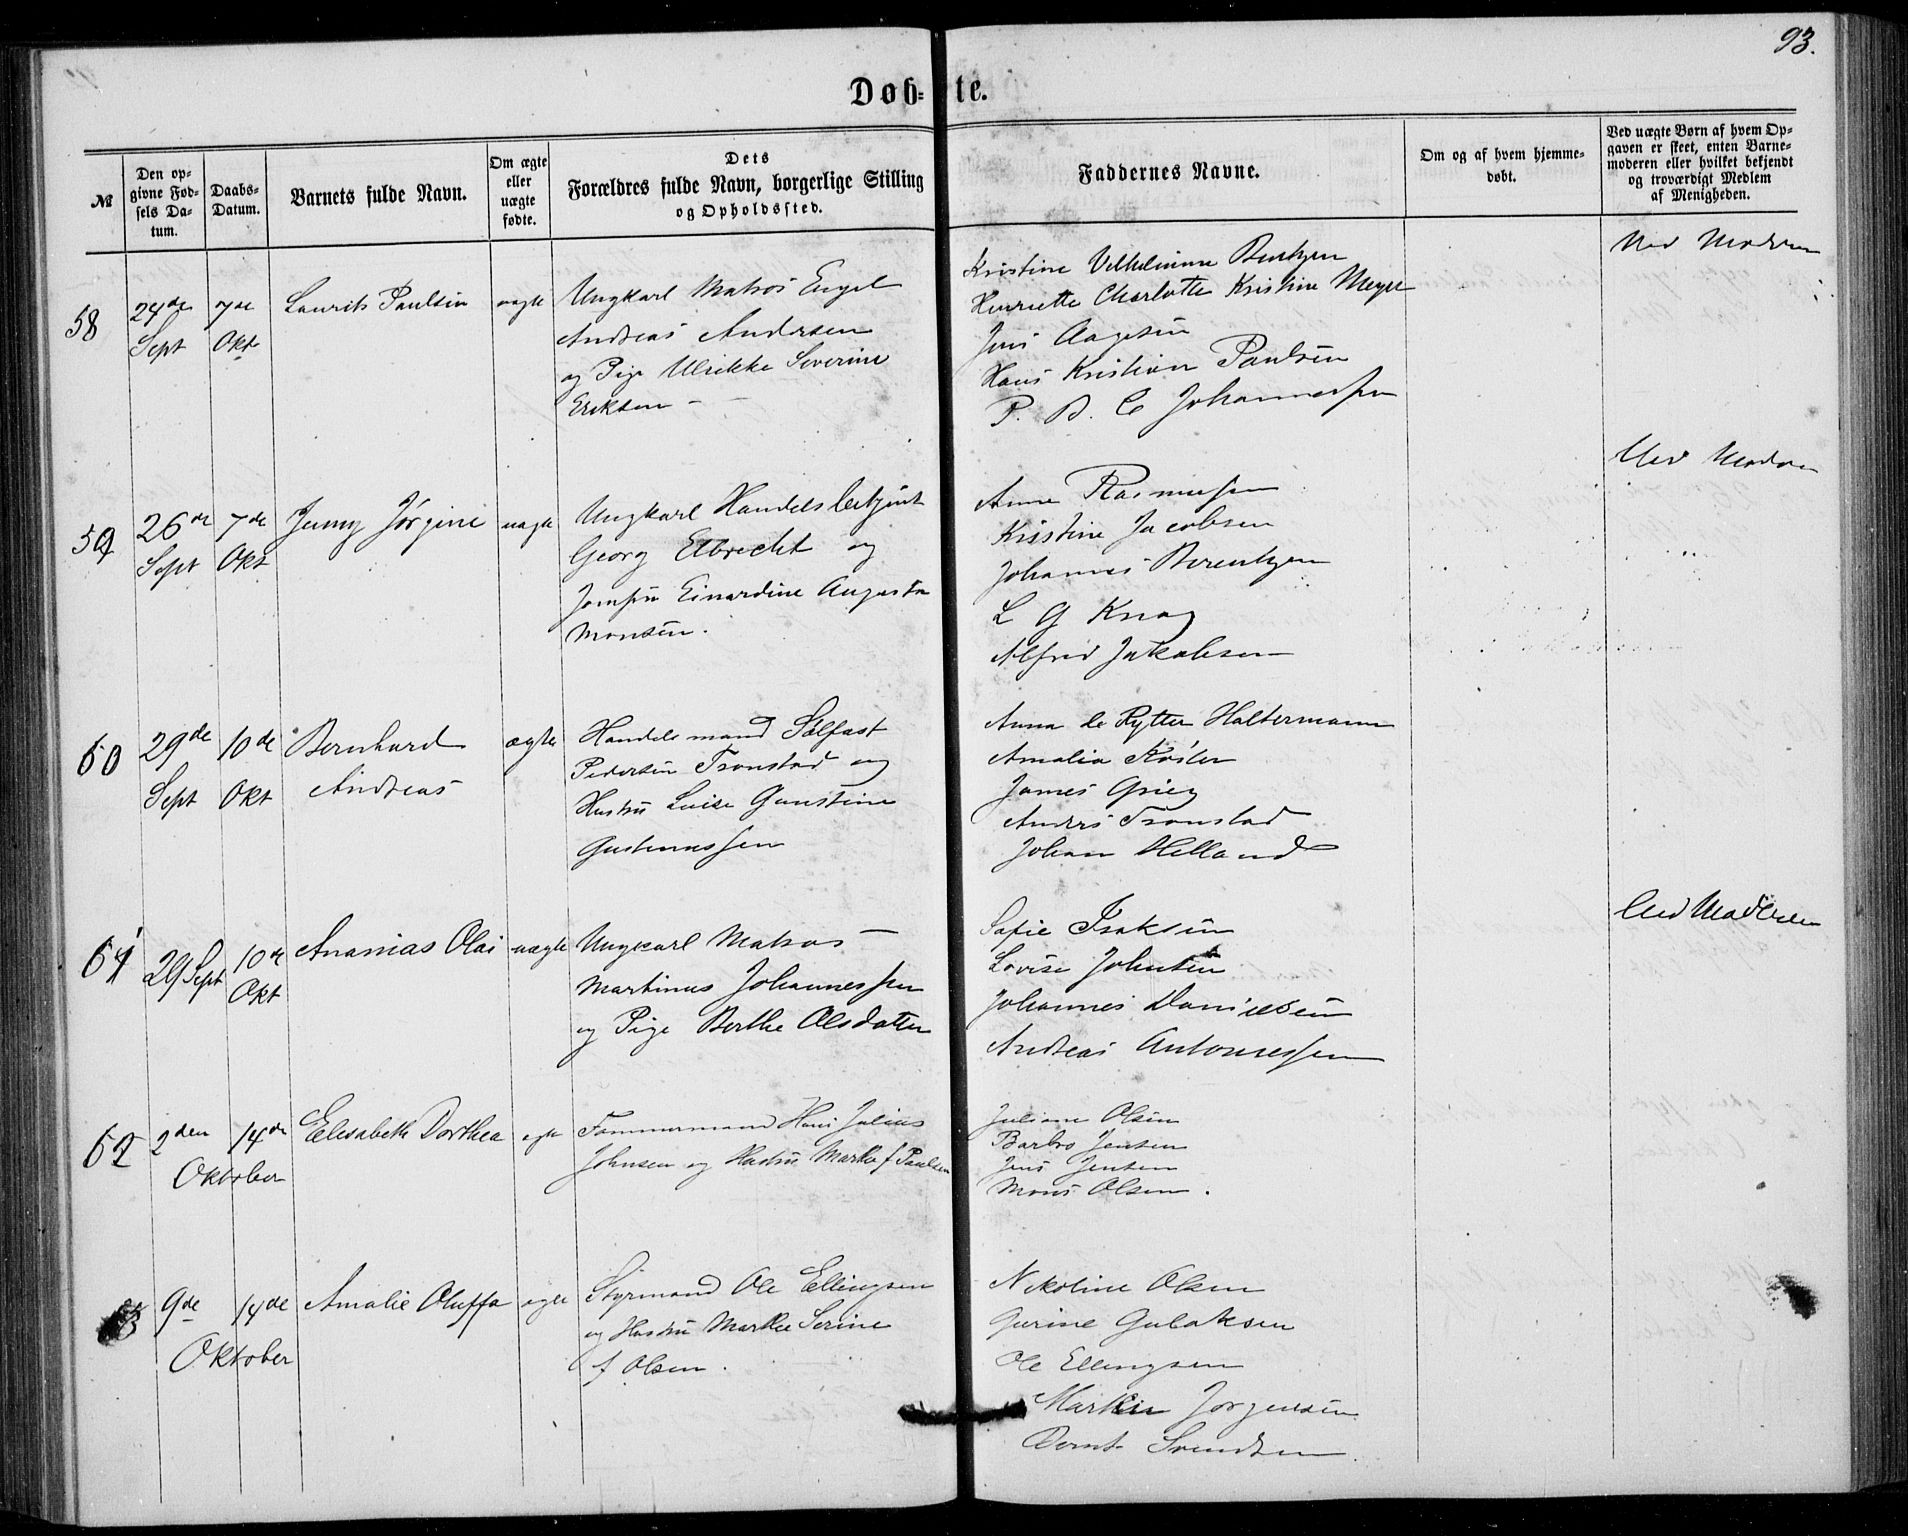 93.
Døb- te.
№
Den op-
givne Fød-
sels Da-
tum.
Daabs-
Datum.
Barnets fulde Navn.
Om ægte
eller
uægte
fødte.
Dets
Forældres fulde Navn, borgerlige Stilling
og Opholdssted.
Faddernes Navne.
Om og af hvem hjemme-
døbt.
Ved uægte Børn af hvem Op-
gaven er skeet, enten Barne-
moderen eller hvilket bekjendt
og troværdigt Medlem
af Menigheden.
58
24de
Sept
7de
Okt
Laurits Paulsin
uægte
Ungkarl Matros Engel
Andreas Andersen
og Pige Ulrikke Severine
Eriksen -
Kristine Vilhelmine
Henriette Charlotte Kristine Meyer
Jens Aagesen
Hans Kristian Paulsen
P. B. C Johannessen
Ved Moderen
59
26de
Sept
7de
Okt
Jenny Jørgine
uægte
Ungkarl Handelsbetjent
Georg Elbrecht og
Jomfru Einardine Augusta
Monsen.
Anne Rasmussen
Kristine Jacobsen
Johannes Berentzen
L G Knag
Alfred Jakobsen
Ved Moderen
60
29de
Sept
10de
Okt
Bernhard
Andreas
ægte
Handelsmand Salfast
Pedersen Tronstad og
Hustru Luise Gunstine
Gustenassen
Anna de Rytter Haltermann
Amalia Köster
James Grieg
Anders Tronstad
Johan Helland
61
29 Sept
10de
Okt
Ananias Olai
uægte
Ungkarl Matros -
Martinus Johannessen
og Pige Berthe Olsdatter
Sofie Isaksen
Lovise Johnsen
Johannes Danielsen
Andreas Antonessen
Ved Moderen
62
2den
14de
Oktober
Elisabeth Dorthea
ægte
Tømmermand Hans Julius
Johnsen og Hustru Marthe f Paulsen
Juliane Olsen
Barbro Jensen
Jens Jensen
Mons Olsen.
63
9de
14de
Oktober
Amalie Oluffa
ægte
Styrmand Ole Ellingsen
og Hustru Marthe Serine
f Olsen.
Nikoline Olsen
Gurine Gulaksen
Ole Ellingsen
Martin Jørgensen
Bernt Svendsen.